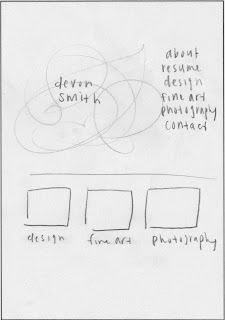 devon
smith
about
resume
design
fine art
photography
contact
design
fine art
photography